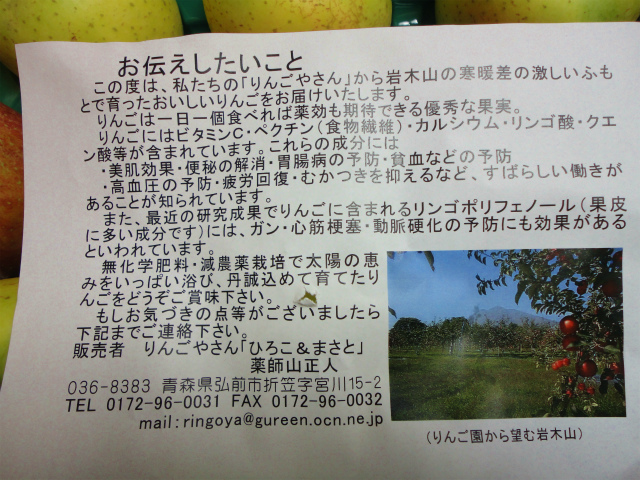 お伝えしたいこと
この度は、私たちの「りんごやさん」から岩木山の寒暖差の激しいふも
とで育ったおいしいりんごをお届けいたします。
りんごは一日一個食べれば薬効も期待できる優秀な果実。
りんごにはビタミンC・ペクチン(食物繊維)・カルシウム・リンゴ酸・クエ
ン酸等が含まれています。これらの成分には
・美肌効果・便秘の解消・胃腸病の予防・貧血などの予防
・高血圧の予防・疲労回復・むかつきを抑えるなど、すばらしい働きが
あることが知られています。
また、最近の研究成果でりんごに含まれるリンゴポリフェノール(果皮
に多い成分です)には、ガン・心筋梗塞・動脈硬化の予防にも効果がある
といわれています。
無化学肥料・減農薬栽培で太陽の恵
みをいっぱい浴び、丹誠込めて育てたり
んごをどうぞご賞味下さい。
もしお気づきの点等がございましたら
下記までご連絡下さい。
販売者 りんごやさん「ひろこ&まさと」
薬師山正人
036-8383 青森県弘前市折笠字宮川15-2
TEL 0172-96-0031 FAX 0172-96-0032
mail:ringoya@gureen.ocn.ne.jp
(りんご園から望む岩木山)